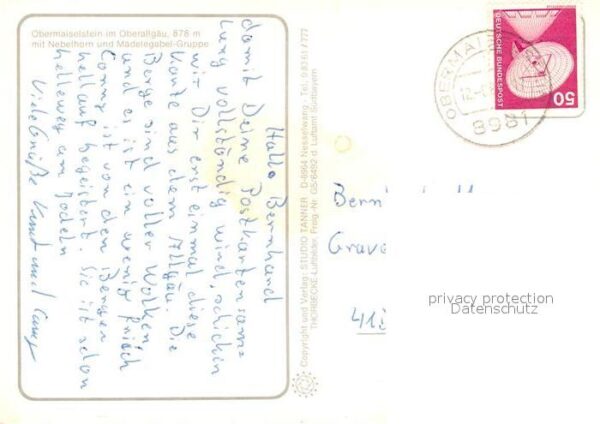 Obermaiselstein im Oberallgäu, 878 m
mit Nebelhorn und Mädelegabel-Gruppe
Hallo Bernhard
damit Deine Postkartensamm=
lung vollständig wird, schicken
wir Dir erst einmal diese
Karte aus dem Allgäu. Die
Berge sind voller Wolken,
und es ist ein wenig frisch
Conny ist von den Bergen
hellauf begeistert. Sie ist schon
am Jodeln
Viele Grüße
Copyright und Verlag: STUDIO TANNER D-8964 Nesselwang · Tel. 0 83 61 / 777
THORBECKE-Luftbilder, Freig.-Nr. GS/6492 d. Luftamt Südbayern
DEUTSCHE BUNDESPOST
50
OBERMAI
12.
8981
Bern
Grave
41
privacy protection
Datenschutz